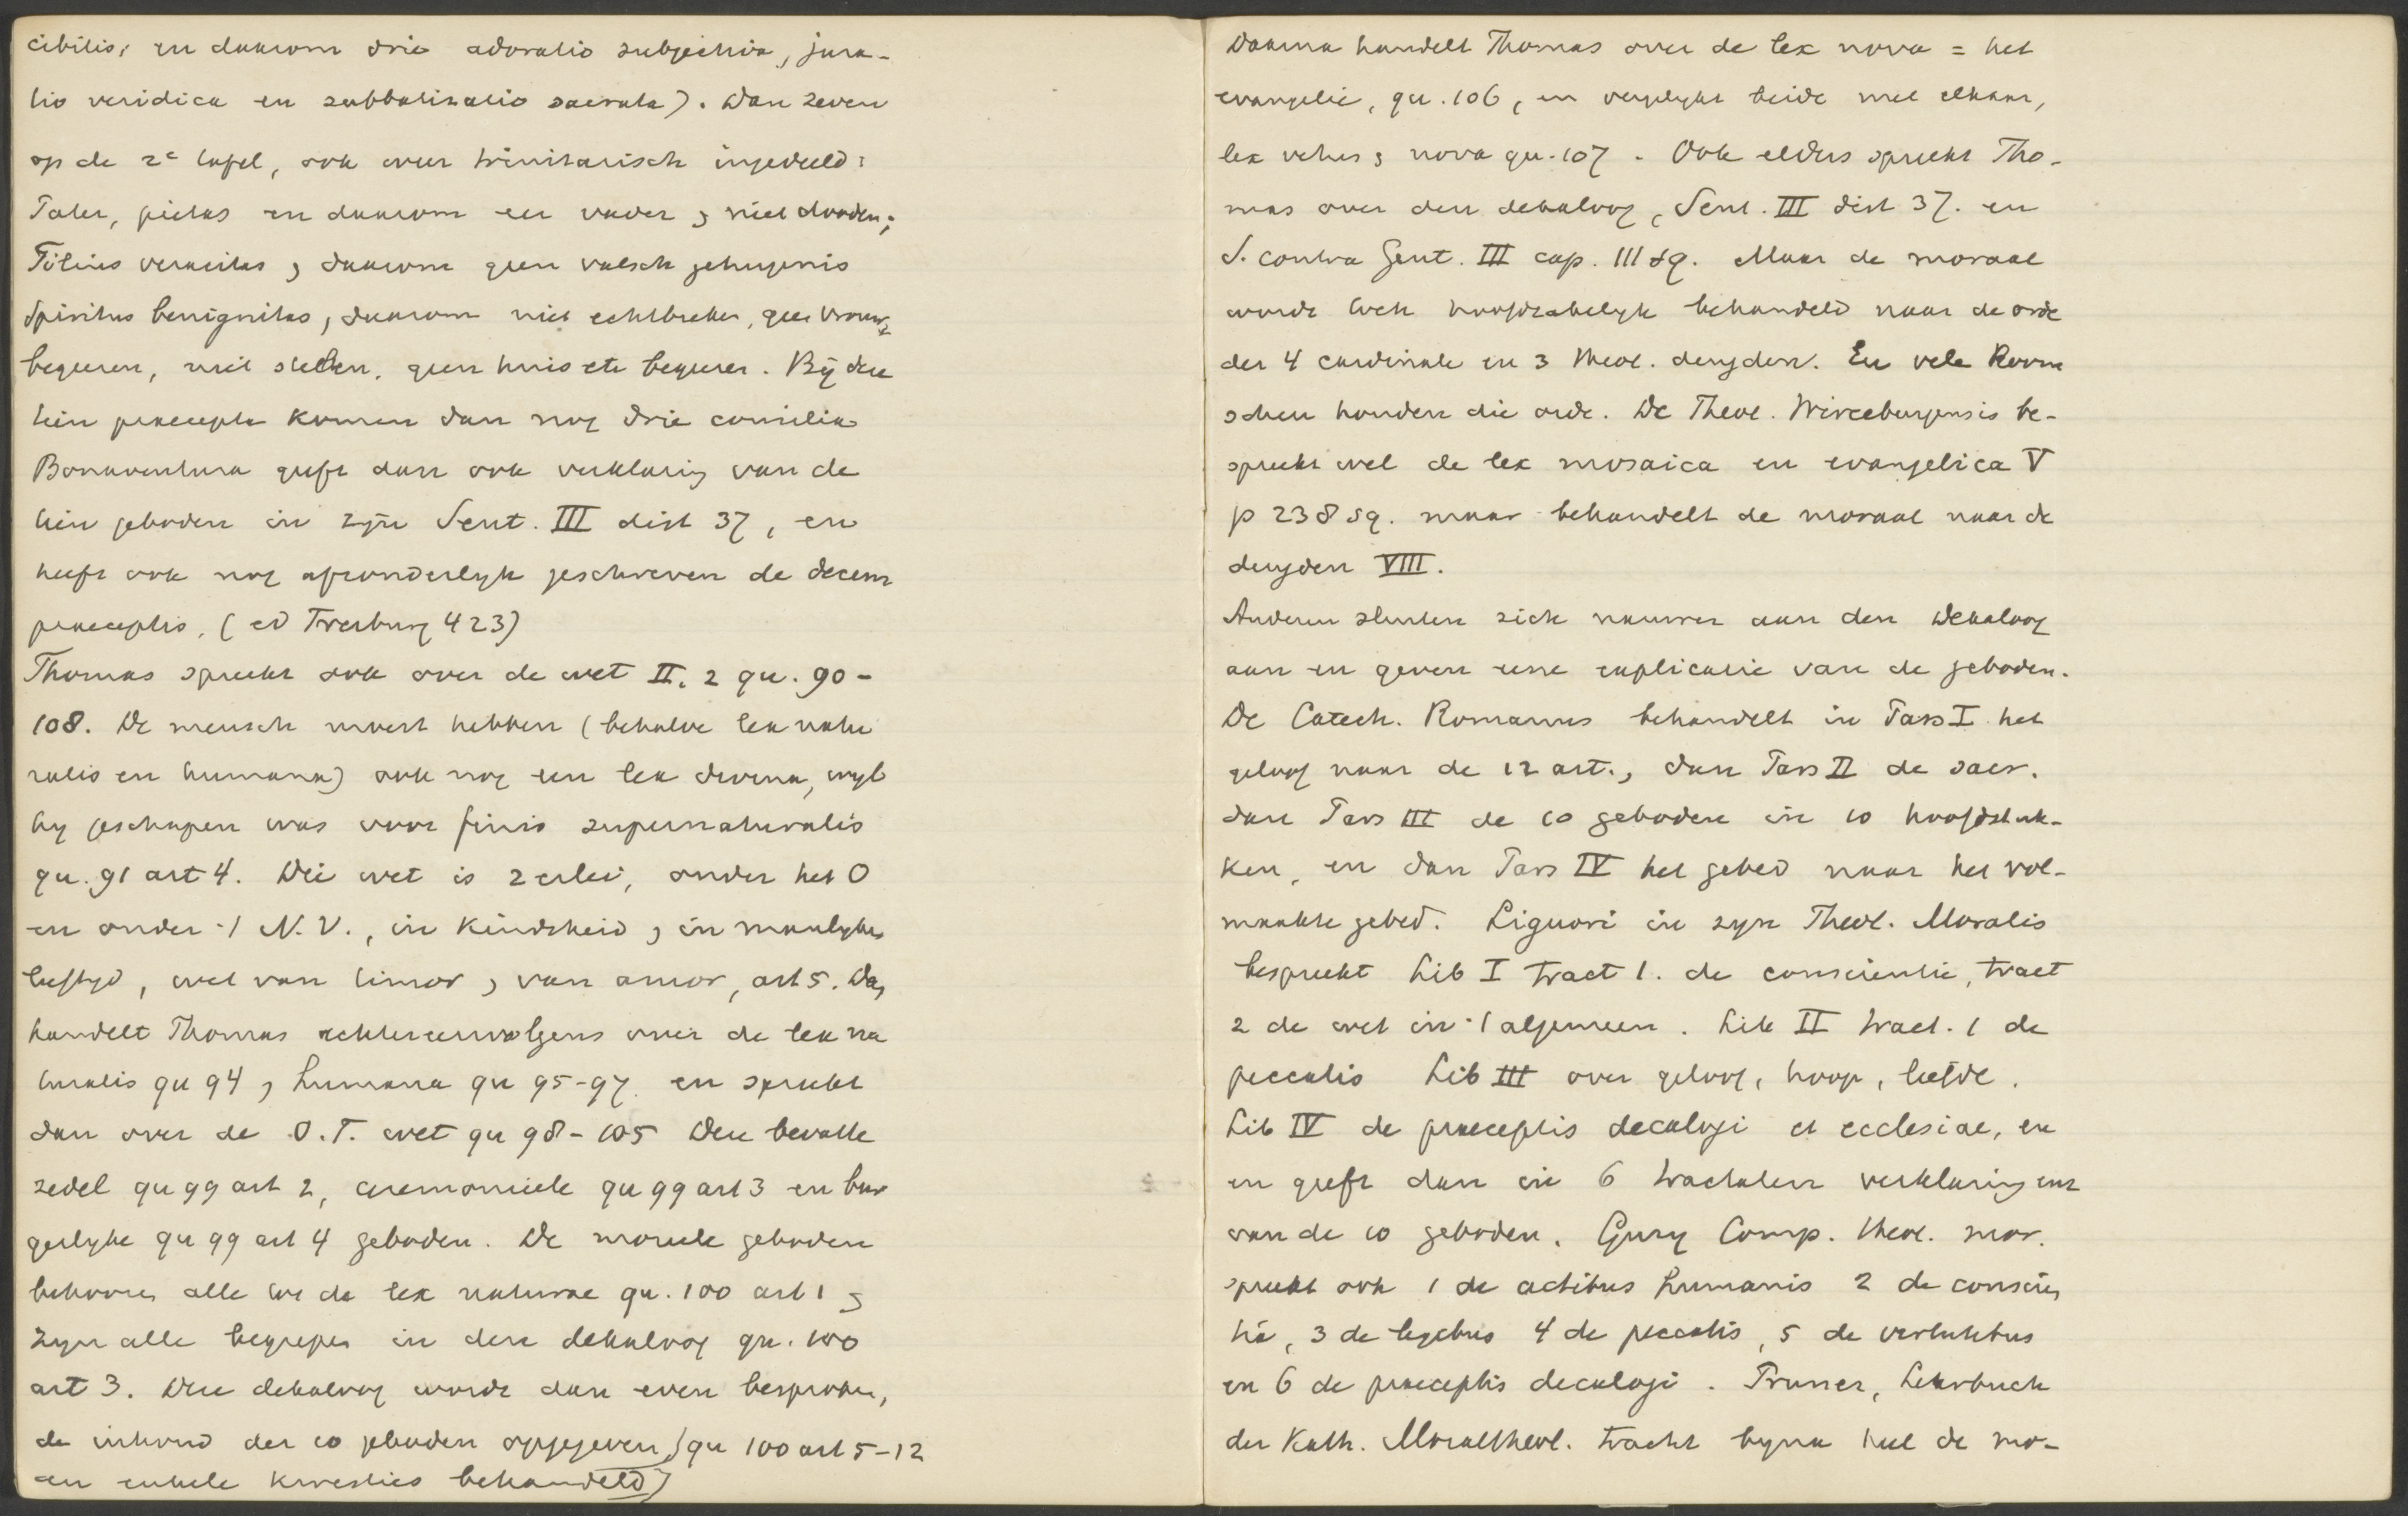 cibilis, en daarom drie adoratio subjectiva, jura-
tio veridica en sabbatizatio sacrata). Dan zeven
op de 2e tafel, ook weer trinitarisch ingedeeld:
Pater, pietas en daarom eer vader & niet dooden;
Filius veracitas, daarom geen valsch getuigenis
Spiritus benignitas, daarom niet echtbreken, geen vrouw
begeeren, niet stelen, geen huis etc begeeren. Bij deze
tien praecepta komen dan nog drie consilia
Bonaventura geeft dan ook verklaring van de
tien geboden in zijn Sent. III dist 37, en
heeft ook nog afzonderlijk geschreven de decem
praeceptis, (ed Freiburg 423)
Thomas spreekt ook over de wet II, 2 qu. 90-
108. De mensch moest hebben (behalve lex natu
ralis en humana) ook nog een lex divina, wijl
hij geschapen was voor finis supernaturalis
qu. 91 art 4. Die wet is 2 erlei, onder het O
en onder 't N. V., in Kindsheid & in manlyke
leeftijd, wet van timor & van amor, art 5. Dan
handelt Thomas achtereenvolgens over de lex na
turalis qu 94 & humana qu 95-97. en spreekt
dan over de O.T. wet qu 98-105 Deze bevatte
zedel qu 99 art 2, ceremonieele qu 99 art 3 en bur
gerlyke qu 99 art 4 geboden. De moreele geboden
behooren alle tot de lex naturae qu. 100 art 1 &
zyn alle begrepen in den dekaloog qu. 100
art 3. Deze dekaloog wordt dan even besproken,
de inhoud der 10 geboden opgegeven (qu 100 art 5-12
en enkele kwesties behandeld)
Daarna handelt Thomas over de lex nova = het
evangelie, qu. 106, en vergelykt beide met elkaar,
lex vetus & nova qu. 107. Ook elders spreekt Tho-
mas over den dekaloog, Sent. III dist 37. en
S. contra Gent. III cap. 111 sq. Maar de moraal
wordt toch hoofdzakelyk behandeld naar de orde
der 4 cardinale en 3 theol. deugden. En vele Room
schen houden die orde. De Theol. Wirceburgensis be-
spreekt wel de lex mosaica en evangelica V
p 238 sq. maar behandelt de moraal naar de
deugden VIII.
Anderen sluiten zich nauwer aan den Dekaloog
aan en geven eene explicatie van de geboden.
De Catech. Romanus behandelt in Pars I het
geloof naar de 12 art., dan Pars II de sacr.
dan Pars III de 10 geboden in 10 hoofdstuk-
ken, en dan Pars IV het gebed naar het vol-
maakte gebed. Liguori in zyn Theol. Moralis
bespreekt Lib I tract 1. de conscientie, tract
2 de wet in 't algemeen. Lib II tract. 1 de
peccatis Lib III over geloof, hoop, liefde.
Lib IV de praeceptis decalogi et ecclesiae, en
en geeft dan in 6 tractaten verklaring
van de 10 geboden. Gury Comp. theol. mor.
spreekt ook 1 de actibus humanis 2 de conscien
tia, 3 de legibus 4 de peccatis, 5 de virtutibus
en 6 de praeceptis decalogi. Pruner, Lehrbuch
der Kath. Moraltheol. tracht byna heel de mo-